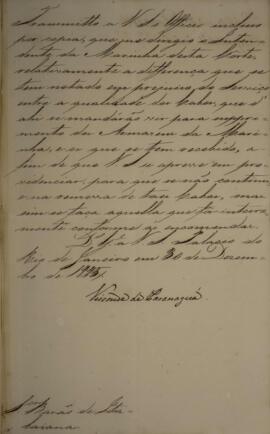 Transmitto a V S o Officio incluso
por copia, que me dirigio o Inten-
dente da Marinha desta Corte,
relativamente a differença que se
tem notado em prejuizo do Serviço
entre a qualidade dos Cabos, que d'
ahi se mandárão vir para suppri-
mento dos Armazens da Mari-
nha, e os que se tem recebido, a
fim de que V S se apresse em pro-
videnciar, para que se não continue
na remessa de taes Cabos, mas
sim se faça aquella que for inteira-
mente conforme se encomendar.
D. G. a V S Palacio do
Rio de Janeiro em 30 de Dezem-
bro de 1825
Visconde de Paranaguá
Senr Barão de Ita-
baiana